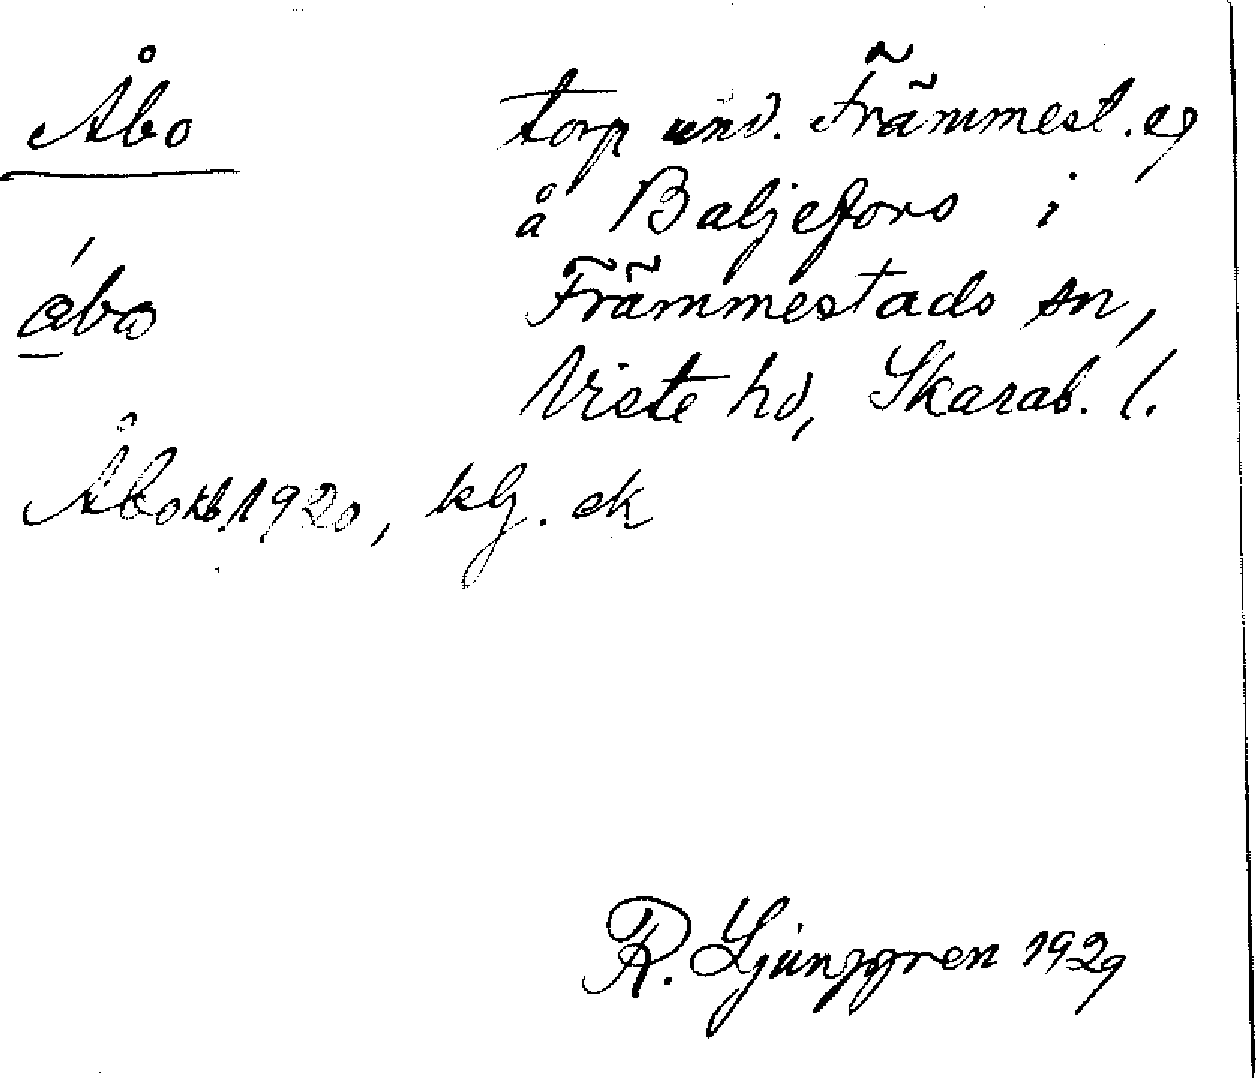 Åbo
torp und. Främmest. eg
å Baljefors i
Främmestads sn,
Viste hd, Skarab. l.
ábo
Åbo kb. 1920, klj. ek
R. Ljunggren 1929